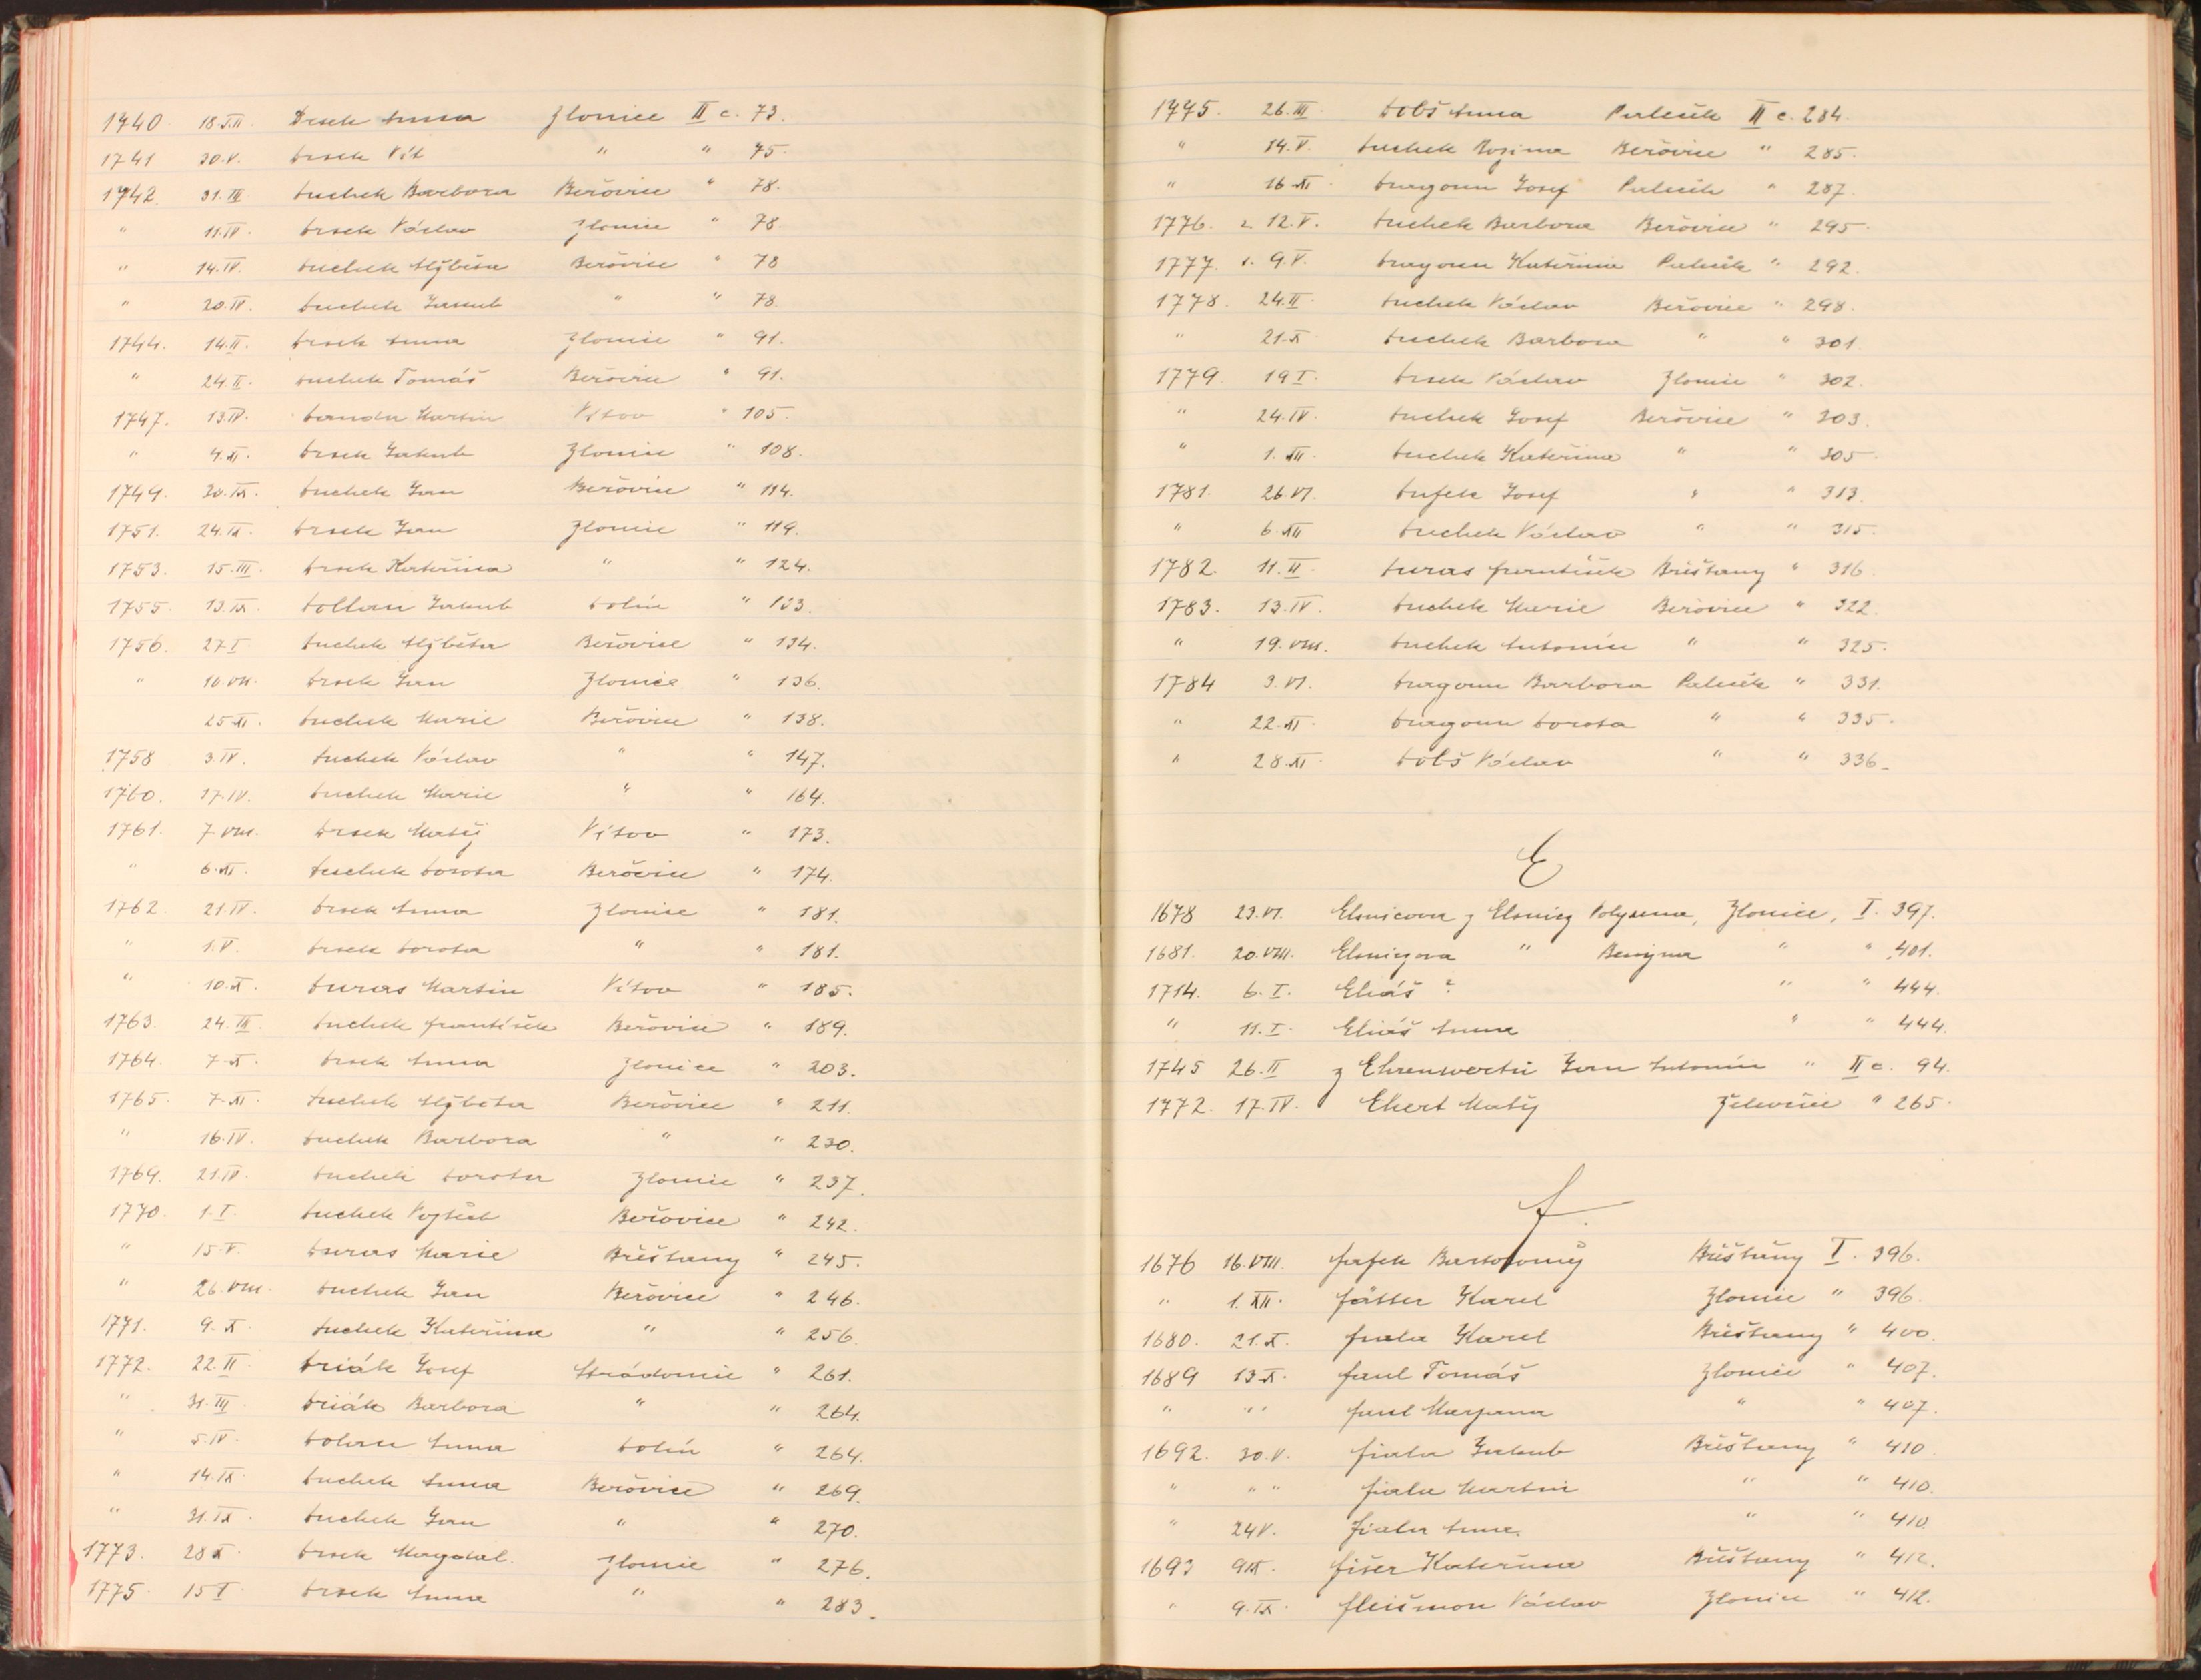 1740 18.XII. Drsek Anna Zlonice II c. 73.
1741 30.V. Drsek Vít " " 75.
1742. 31.III. Duchek Barbora Beřovice " 78.
" 11.IV. Drsek Václav Zlonice " 78.
" 14.IV. Duchek Alžběta Beřovice " 78
" 20.IV. Duchek Jakub " " 78.
1744. 14.II. Drsek Anna Zlonice " 91.
" 24.II. Duchek Tomáš Beřovice " 91.
1747. 13.IV. Martin Vítov " 105.
" 4.XI. Drsek Jakub Zlonice " 108.
1749. 30.IX. Duchek Jan Beřovice " 114.
1751. 24.IX. Drsek Jan Zlonice " 119.
1753. 15.III. Drsek Kateřina " " 124.
1755. 13.IX. Dollan Jakub Dolín " 133.
1756. 27.I. Duchek Alžběta Beřovice " 134.
" 10.VII. Drsek Jan Zlonice " 136.
25.XI. Duchek Marie Beřovice " 138.
1758 3.IV. Duchek Václav " " 147.
1760. 17.IV. Duchek Marie " " 164.
1761. 7.VIII. Drsek Matěj Vítov " 173.
" 6.XI. Duchek Dorota Beřovice " 174.
1762 21.IV. Drsek Anna Zlonice " 181.
" 1.V. Drsek Dorota " " 181.
" 10.X. Duras Martin Vítov " 185.
1763. 24.III. Duchek František Beřovice " 189.
1764. 7.X. Drsek Anna Zlonice " 203.
1765. 7.XI. Duchek Alžběta Beřovice " 211.
" 16.IV. Duchek Barbora " " 230.
1769. 21.IV. Duchek Dorota Zlonice " 237.
1770. 1.I. Duchek Vojtěch Beřovice " 242.
" 15.V. Duras Marie Bříšťany " 245.
" 26.VIII. Duchek Jan Beřovice " 246.
1771. 9.X. Duchek Kateřina " " 256.
1772. 22.II. Driák Josef Strádonice " 261.
" 31.III. Driák Barbora " " 264.
" 5.IV. Dolan Anna Dolín " 264.
" 14.IX. Duchek Anna Beřovice " 269.
" 31.IX. Duchek Jan " " 270.
1773. 28.X. Drsek Magdal. Zlonice " 276.
1775. 15.I. Drsek Anna " " 283.
1775. 26.III. Dolš Anna Paleček II c. 284.
" 14.V. Duchek Rozina Beřovice " 285.
" 16.XI. Dragoun Josef Paleček " 287.
1776. 2. 12.V. Duchek Barbora Beřovice " 295.
1777. 1. 9.V. Dragoun Kateřina Paleček " 292.
1778. 24.II. Duchek Václav Beřovice " 298.
" 21.X Duchek Barbora " " 301.
1779. 19 I. Drsek Václav Zlonice " 302.
" 24.IV. Duchek Josef Beřovice " 303.
" 1.XII. Duchek Kateřina " " 305.
1781. 26.VI. Josef " " 313.
" 6.XII Duchek Václav " " 315.
1782. 11.II. Duras František Bříšťany " 316.
1783. 13.IV. Duchek Marie Beřovice " 322.
" 19.VIII. Duchek Antonín " " 325.
1784 3.VI. Dragoun Barbora Paleček " 331.
" 22.XI. Dragoun Dorota " " 335.
" 28.XI. Dolš Václav " " 336.
E
1678 23.VI. Elsnicova z Elsnicz Polyxena, Zlonice, I. 397.
1681. 20.VIII. Elsniczova " " " 401.
1714. 6.I. Eliáš ? " " 444.
" 11.I. Eliáš Anna " " 444.
1745 26.II z Ehrenwertů Jan Antonín " II c. 94.
1772. 17.IV. Ekert Matěj Želevčice " 265.
F.
1676 16.VIII. Fafek Bartoloměj Bříšťany I. 396.
" 1.XII. Karel Zlonice " 396.
1680. 21.X. Fiala Karel Bříšťany " 400.
1689 13.X. Faul Tomáš Zlonice " 407.
" " Faul Marjana " " 407.
1692. 30.V. Fiala Jakub Bříšťany " 410.
" " " Fiala Martin " " 410.
" 24V. Fiala Anna. " " 410.
1693 9IX. Fišer Kateřina Bříšťany " 412.
" 9.IX. Fleišmon Václav Zlonice " 412.